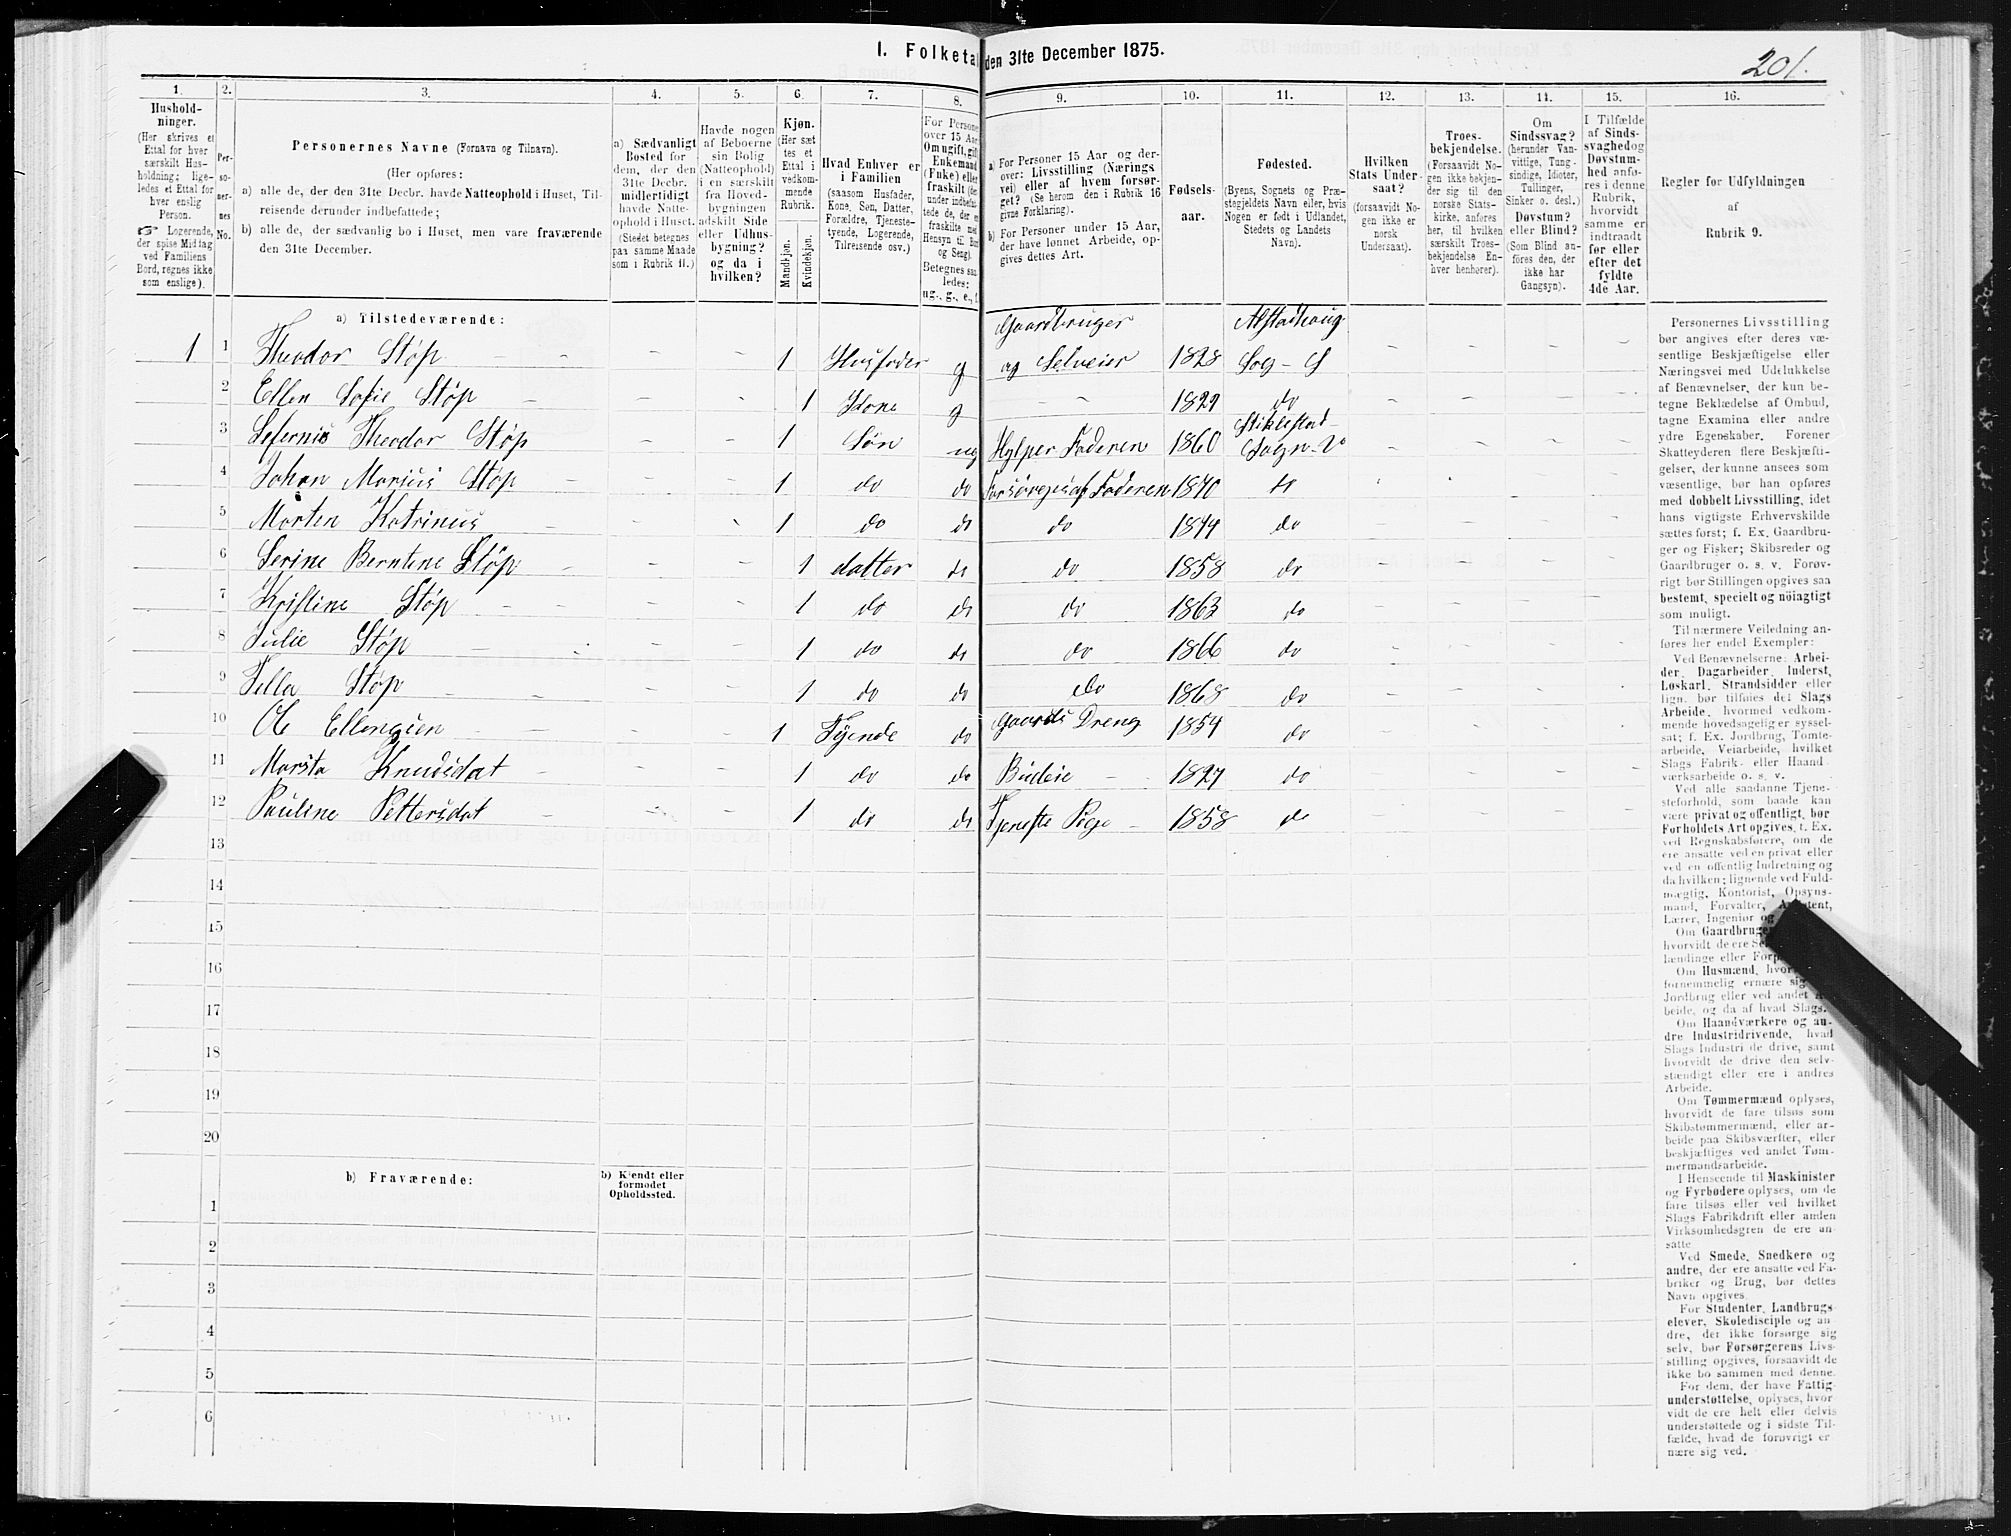 I. Folketal den 31te December 1875.
201.
1. 2. 3. 4. 5. 6. 7. 8. 9. 10. 11. 12. 13. 14. 15. 16.
Hushold-
ninger.
(Her skrives et
Ettal for hver
særskilt Hus-
holdning; lige-
ledes et Ettal for
hver enslig
Person.
☞ Logerende,
der spise Middag
ved Familiens
Bord, regnes ikke
som enslige).
Per-
so-
ner-
nes
No.
Personernes Navne (Fornavn og Tilnavn).
(Her opføres:
a) alle de, der den 31te Decbr. havde Natteophold i Huset, Til-
reisende derunder indbefattede;
b) alle de, der sædvanlig bo i Huset, men vare fraværende
den 31te December.
a) Sædvanligt
Bosted for
dem, der den
31te Decbr.
midlertidigt
havde Natte-
ophold i Huset.
(Stedet betegnes
paa samme Maade
som i Rubrik 11.)
Havde nogen
af Beboerne
sin Bolig
(Natteophold)
i en særskilt
fra Hoved-
bygningen
adskilt Side-
eller Udhus-
bygning?
og da i
hvilken?
Kjøn.
(Her sæt-
tes et
Ettal i
vedkom-
mende
Rubrik.
Mandkjøn.
Kvindekjøn.
Hvad Enhver er
i Familien
(saasom Husfader,
Kone, Søn, Datter,
Forældre, Tjeneste-
tyende, Logerende,
Tilreisende osv.)
For Personer
over 15 Aar:
Om ugift, gift,
Enkemand
(Fuke) eller
fraskilt (der-
under indbefat-
tede de, der ere
fraskilte med
Hensyn til Bord
og Seng).
Betegnes saa-
ledes:
ug., g., e., f.
a) For Personer 15 Aar og der-
over: Livsstilling (Nærings-
vei) eller af hvem forsør-
get? (Se herom den i Rubrik 16
givne Forklaring).
b) For Personer under 15 Aar,
der have lønnet Arbeide, op-
gives dettes Art.
Fødsels-
aar.
Fødested.
(Byens, Sognets og Præ-
stegjeldets Navn eller, hvis
Nogen er født i Udlandet,
Stedets og Landets
Navn).
Hvilken
Stats Under-
saat?
(forsaavidt No-
gen ikke er
norsk
Undersaat).
Troes-
bekjendelse.
(Forsaavidt No-
gen ikke bekjen-
der sig til den
norske Stats-
kirke, anføres
her, til hvilken
særskilt Troes-
bekjendelse En-
hver henhører).
Om
Sindssvag?
(herunder Van-
vittige, Tung-
sindige, Idioter,
Tullinger,
Sinker o. desl.)
Døvstum?
eller Blind?
(Som Blind an-
føres den, der
ikke har
Gangsyn).
I Tilfælde
af Sinds-
svaghed og
Døvstum-
hed anfø-
res i denne
Rubrik,
hvorvidt
samme er
indtraadt
før eller
efter det
fyldte
4de Aar.
Regler for Udfyldningen
af
Rubrik 9.
a) Tilstedeværende:
Gaardbruger Alstadhaug
1 1 Theodor Støp 1 Husfader g og Selveier 1828 Sog- S
2 Ellen Sofie Støp 1 Kone g 1829 do
Stiklestad-
3 Theodor Støp 1 Søn ug Hjelper Faderen 1860 Sogn V
4 Johan Marius Støp 1 do do Forsørges af Faderen 1870 do
5 Morten Katrinus 1 do do do 1874 do
6 Serine Berntine Støp 1 datter do do 1858 do
7 Kristine Støp 1 do do do 1863 do
8 Julie Støp 1 do do do 1866 do
9 Støp 1 do do do 1868 do
10 Ole 1 Tyende do Gaards Dreng 1854 do
11 Marta Knudsdat 1 do do Budeie 1827 do
12 Pauline Pettersdat 1 do do Tjeneste Pige 1858 do
13
14
15
16
17
18
19
20
b) Fraværende:
b) Kjendt eller
formodet
Opholdssted.
1
2
3
4
5
6
Personernes Livsstilling
bør angives efter deres væ-
sentlige Beskjæftigelse eller
Næringsvei med Udelukkelse
af Benævnelser, der kun be-
tegne Beklædelse af Ombud,
tagne Examina eller andre
ydre Egenskaber. Forener
Skatteyderen flere Beskjæfti-
gelser, der kunne ansees som
væsentlige, bør han opføres
med dobbelt Livsstilling, idet
hans vigtigste Erhvervskilde
sættes først; f. Ex. Gaardbru-
ger og Fisker; Skibsreder og
Gaardbruger o. s. v. Forøv-
rigt bør Stillingen opgives saa
bestemt, specielt og nöiagtigt
som muligt.
Til nærmere Veiledning an-
føres her endel Exempler:
Ved Benævnelserne: Arbei-
der, Dagarbeider, Inderst,
Løskarl, Strandsidder eller
lign. bør tilføies det Slags
Arbeide, hvormed vedkom-
mende hovedsagelig er syssel-
sat; f. Ex. Jordbrug, Tomte-
arbeide, Veiarbeide, hvilket
Slags Fabrik- eller Haand-
værksarbeide o. s. v.
Ved alle saadanne Tjene-
steforhold, som baade kan
være privat og offentligt, bør
Forholdets Art opgives, t. Ex.
ved Regnskabsførere, om de
ere ansatte ved en privat eller
ved en offentlig Indretning og
da hvilken; lignende ved Fuld-
mægtig, Kontorist, Opsyns-
mand, Forvalter,
Lærer, Ingeniør og
Om Gaardbruger
hvorvidt de ere
lændinge eller
Om Husmænd,
fornemmelig ernære sig
Jordbrug eller ved andet
beide, og da af hvad Slags.
Om Haandværkere og an-
dre Industridrivende, hvad
Slags Industri de drive, samt
hvorvidt de drive den selv-
stændigt eller ere i andres
Arbeide.
Om Tømmermænd oplyses,
hvorvidt de fare tilsøs som
Skibstømmermænd, eller ar-
beide paa Skibsværfter, eller
beskjæftiges ved andet Tøm-
mermandsarbeide.
I Henseende til Maskinister
og Fyrbødere oplyses, om de
fare tilsøs eller ved hvilket
Slags Fabrikdrift eller anden
Virksomhedsgren de ere an-
satte
Ved Smede, Snedkere og
andre, der ere ansatte ved Fa-
briker og Brug, bør dettes
Navn opgives.
For Studenter, Landbrugs-
elever, Skoledisciple og an-
dre, der ikke forsørge sig
selv, bør Forsørgerens Livs-
stilling opgives, forsaavidt de
ikke bo sammen med denne.
For dem, der have Fattig-
understøttelse, oplyses, hvor-
vidt de ere helt eller delvis
understøttede og i sidste Til-
fælde, hvad de forøvrigt er-
nære sig ved.